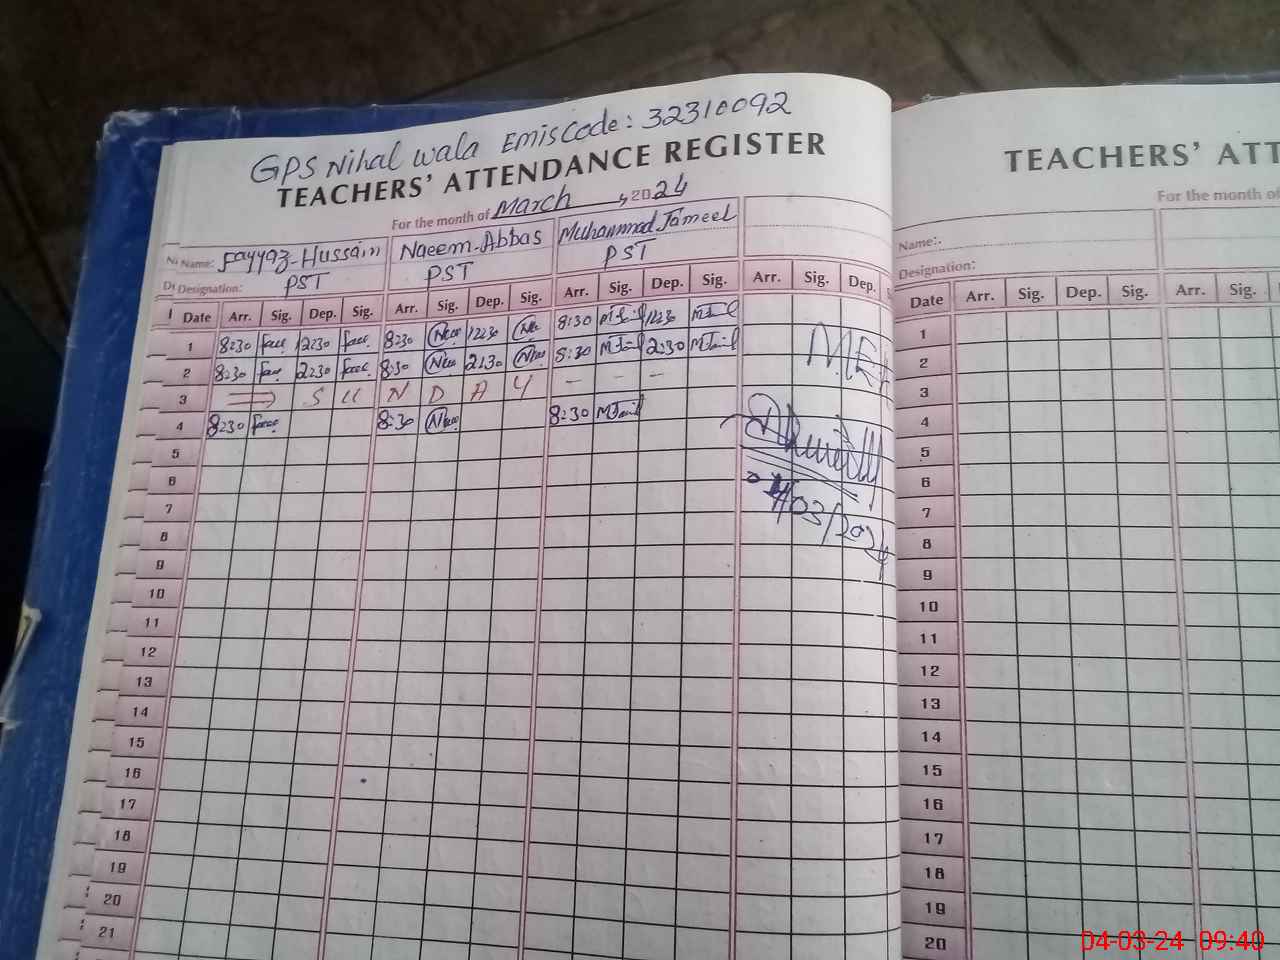 GPS Nihal wala EmisCode: 32310092
TEACHERS' ATTENDANCE REGISTER
For the month of March, 2024
Name: Fayyaz Hussain Naeem.Abbas Muhammad Jameel
Designation: PST PST PST
Date Arr. Sig. Dep. Sig. Arr. Sig. Dep. Sig. Arr. Sig. Dep. Sig. Arr. Sig. Dep.
1 8:30 12:30 8:30 12:30 8:30 12:30
2 8:30 2:30 8:30 2:30 8:30 2:30
3 S U N D A Y - - -
4 8:30 8:30 8:30
5
6
7
8
9
10
11
12
13
14
15
16
17
18
19
20
21
M.E.A
04/03/2024
TEACHERS' ATT
For the month of
Name:.
Designation:
Date Arr. Sig. Dep. Sig. Arr. Sig.
1
2
3
4
5
6
7
8
9
10
11
12
13
14
15
16
17
18
19
20
04-03-24 09:40